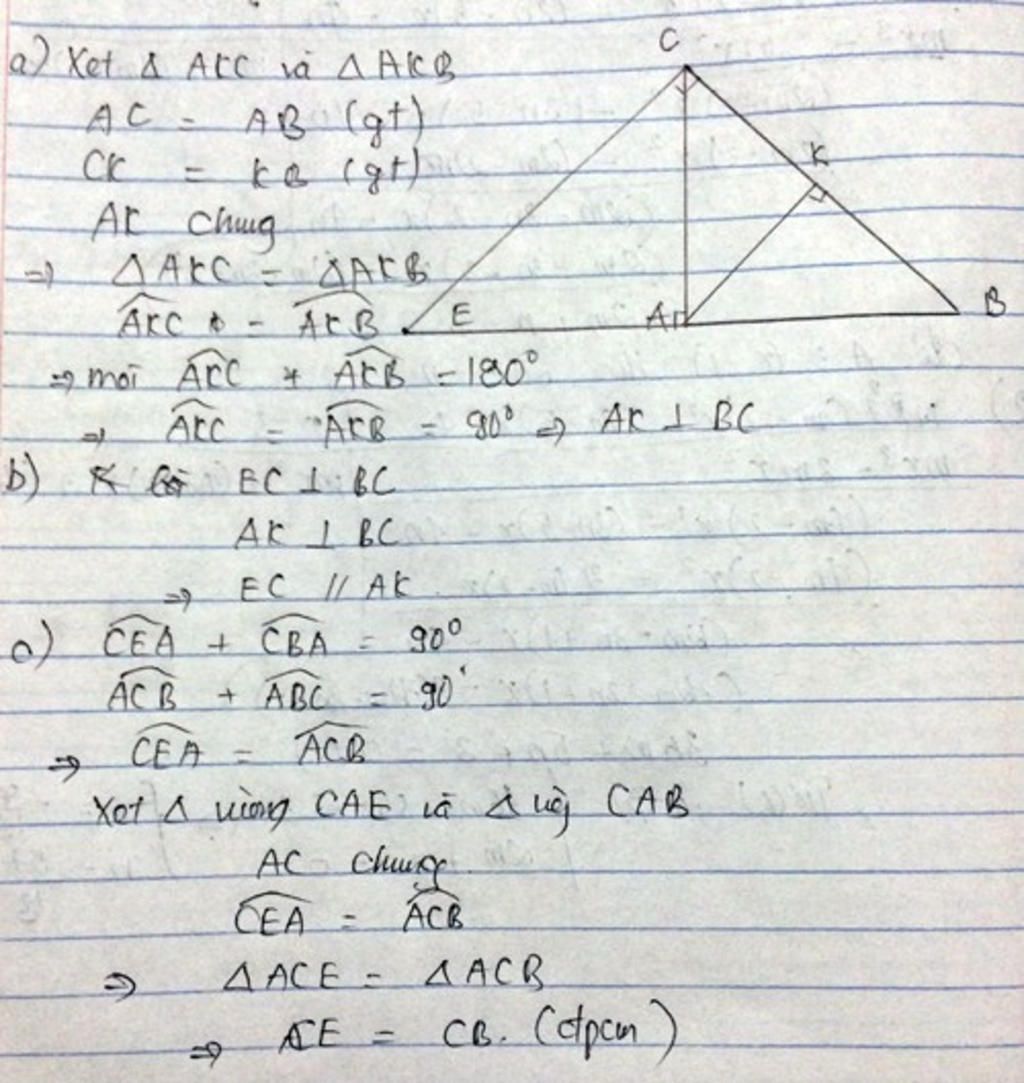 a) Xét Δ AKC và Δ AKB
AC = AB (gt)
CK = KB (gt)
AK chung
⇒ ΔAKC = ΔAKB
AKC = AKB
⇒ mà AKC + AKB = 180°
⇒ AKC = AKB = 90° ⇒ AK ⊥ BC
b) EC ⊥ BC
AK ⊥ BC
⇒ EC // AK
c) CEA + CBA = 90°
ACB + ABC = 90°
⇒ CEA = ACB
Xét Δ vuông CAE và Δ CAB
AC chung
CEA = ACB
⇒ ΔACE = ΔACB
⇒ CE = CB. (đpcm)
C
K
E
A
B